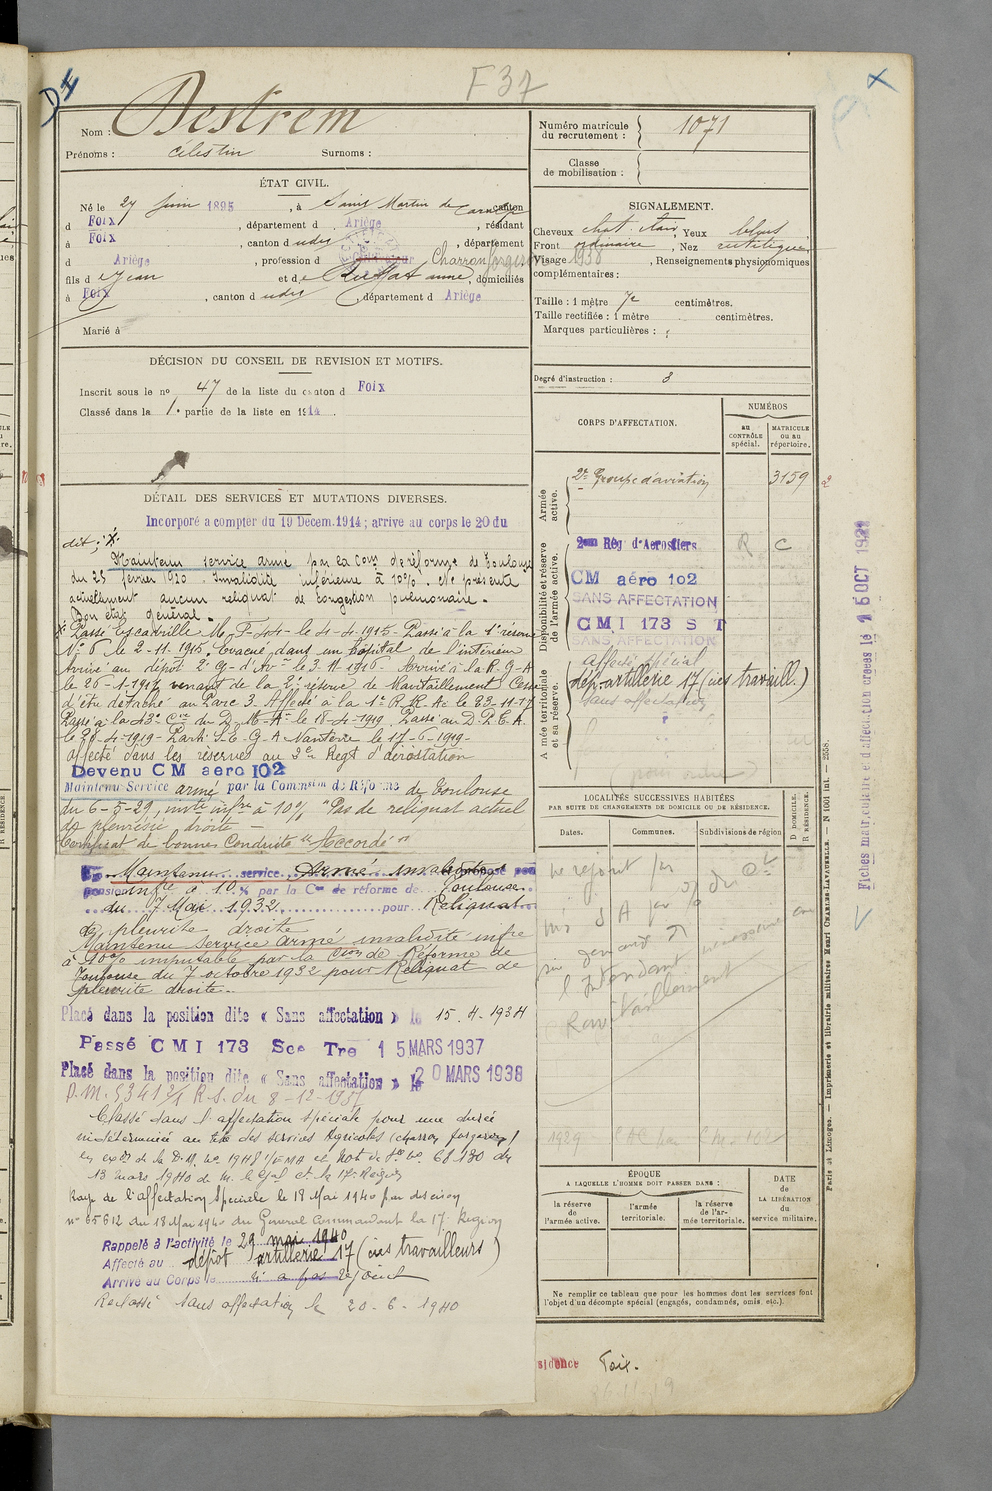 F 37
Nom : Destrem
Prénoms : Célestin Surnoms :
Numéro matricule du recrutement : 1071
Classe de mobilisation :
ÉTAT CIVIL.
Né le 27 Juin 1895, à Saint Martin de canton
d Foix, département d Ariège, résidant
à Foix, canton d udit, département
d Ariège, profession d Charron forgeron
fils d Jean et d e anne, domiciliés
à Foix, canton d udit, département d Ariège
Marié à
SIGNALEMENT.
Cheveux chat. clair, Yeux bleus
Front ordinaire, Nez rectiligne
Visage, Renseignements physionomiques
complémentaires :
Taille : 1 mètre 72 centimètres.
Taille rectifiée : 1 mètre centimètres.
Marques particulières :
Degré d'instruction : 3
DÉCISION DU CONSEIL DE REVISION ET MOTIFS.
Inscrit sous le no 47 de la liste du canton d Foix
Classé dans la 1e partie de la liste en 1914.
DÉTAIL DES SERVICES ET MUTATIONS DIVERSES.
Incorporé a compter du 19 Décem. 1914 ; arrive au corps le 20 du
dit ;
Maintenu service armé par la Com de réforme de Toulouse
du 25 février 1920. Invalidité inférieure à 10%. Ne présente
actuellement aucun reliquat de congestion pulmonaire.
Bon état général.
Passé Escadrille M F-44- le 4-4-1915- Passé à la 1e réserve
No 6 le 2-11-1915, Evacué dans un hôpital de l'intérieur
Arrivé au dépôt 2e G- d'Av le 3.11.1916- Arrivé à la R. G. A
le 26-1-1917 venant de la 2e réserve de Ravitaillement Cesse
d'être détaché au Parc 3. Affecté à la 1e R. R. Ac le 23-11-17
Passé à la 43e Cie du D. M. A- le 18-4-1919. Passé au D. P. C. A.
le 28-4-1919- Parti S. E. G. A Nanterre le 17-6-1919-
affecté dans les réserves au 2e Regt d'aérostation
Devenu CM aéro 102
Maintenu Service armé par la Commsion de Réforme de Toulouse
du 6-5-29, invté infre à 10% "Pas de reliquat actuel
de pleurésie droite -
Certificat de bonne Conduite "Accordé"
Maintenu service Armé invalidité
pension infre à 10% par la Con de réforme de Toulouse
du 7 Mai 1932 pour Reliquat
de pleurite droite
Maintenu Service armé invalidité infre
à 10% imputable par la Cion de Réforme de
Toulouse du 7 octobre 1932 pour Reliquat de
pleurite droite.
Placé dans la position dite « Sans affectation » le 15.4.1934
Passé C M I 173 Sce Tre 15 MARS 1937
Placé dans la position dite « Sans affectation » le 20 MARS 1938
D.M. 5341 2/1 R.S. du 8-12-
Classé dans l'affectation spéciale pour une durée
indéterminée au titre des services agricoles (charron forgeron)
en exon de la D.M. no 1948 1/EMA et Not de Sce no 68130 du
13 mars 1940 de M. le Gal Ct la 17e Région
Rayé de l'affectation Spéciale le 18 Mai 1940 par décision
no 65612 du 18 Mai 1940 du Général Commandant la 17e Région
Rappelé à l'activité le 29 mai 1940
Affecté au dépôt artillerie 17 (ies travailleurs)
Arrivé au Corps le n'a pas rejoint
Reclassé sans affectation le 20-6-1940
CORPS D'AFFECTATION.
NUMÉROS
au CONTRÔLE spécial.
MATRICULE ou au répertoire.
Armée active.
2e Groupe d'aviation 3159
Disponibilité et réserve de l'armée active.
2eme Rég d'Aerostiers R C
CM aéro 102
SANS AFFECTATION
CM I 173 S T
SANS AFFECTATION
Armée territoriale et sa réserve.
affecté spécial
dép. artillerie 17 (ies travaill.)
sans affectation
LOCALITÉS SUCCESSIVES HABITÉES
PAR SUITE DE CHANGEMENTS DE DOMICILE OU DE RÉSIDENCE.
Dates. Communes. Subdivisions de région
D DOMICILE.
R RÉSIDENCE.
l'Intendant
Ravitaillement
1929
ÉPOQUE
A LAQUELLE L'HOMME DOIT PASSER DANS :
la réserve de l'armée active.
l'armée territoriale.
la réserve de l'armée territoriale.
DATE de LA LIBÉRATION du service militaire.
Ne remplir ce tableau que pour les hommes dont les services font
l'objet d'un décompte spécial (engagés, condamnés, omis, etc.).
sidence Foix.
Paris et Limoges. — Imprimerie et librairie militaires Henri CHARLES-LAVAUZELLE. — N° 1601 int. — 2558.